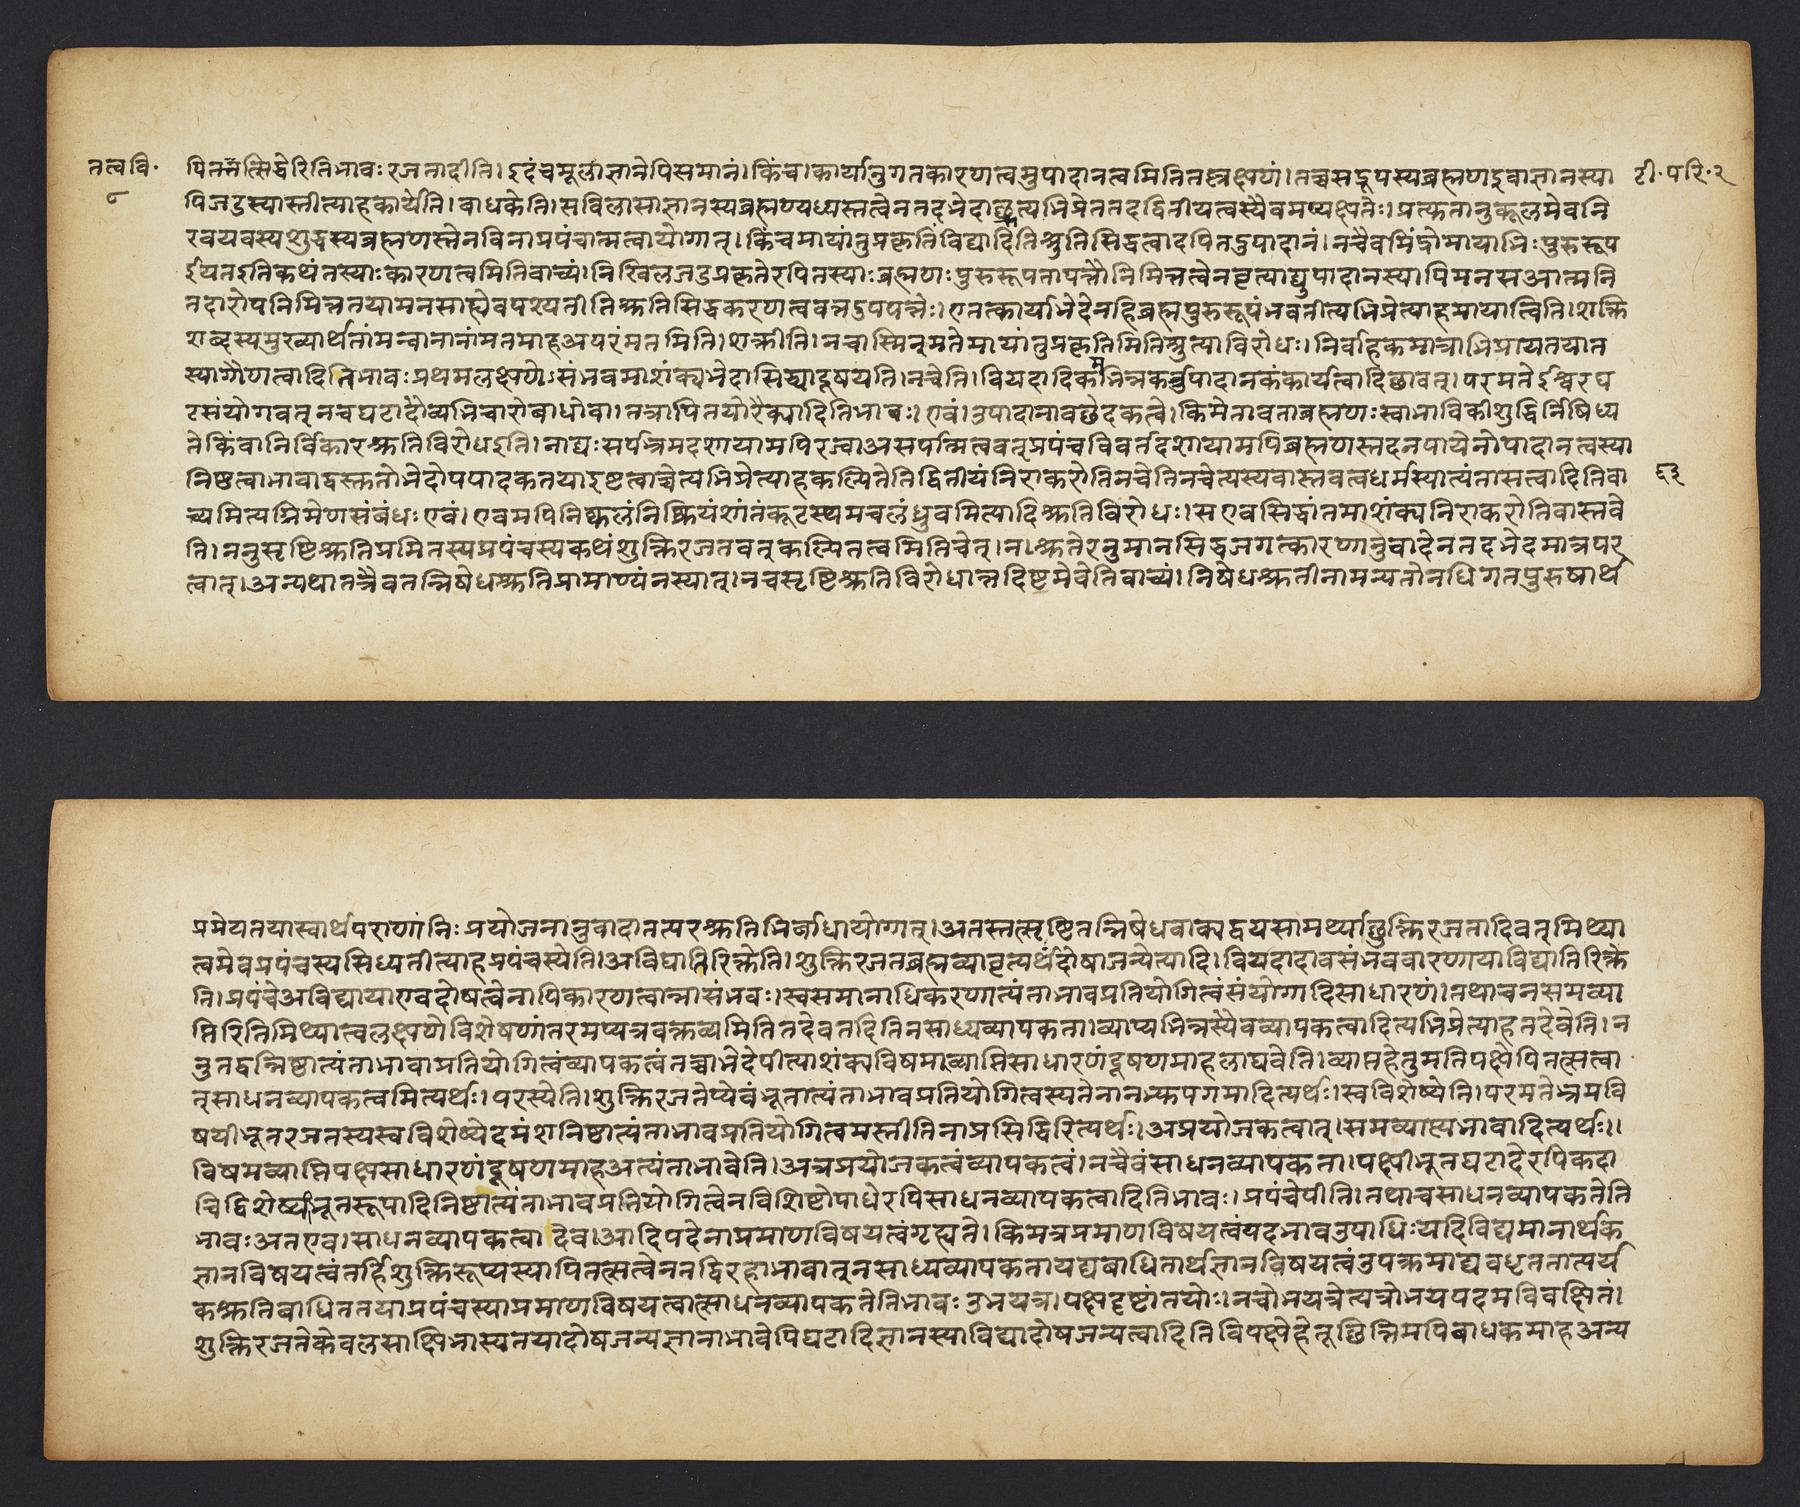 तत्ववि॰ पितन्नतत्सिद्धेरितिभावः रजतादीति। इदंचमूलाज्ञानेपिसमानं। किंच। कार्यानुगतकारणत्वमुपादानत्वमितितल्लक्षणं। तच्चसद्रूपस्यब्रह्मणइवाज्ञानस्या टी॰परि॰२
८
पिजडस्यास्तीत्याहकार्येति। बाधकेति। सविलासाज्ञानस्यब्रह्मण्यध्यस्तत्वेनतदभेदात् त्यभिप्रेततदद्वितीयत्वस्यैवमप्यक्षतेः। प्रत्यक्तानुकूलमेवनि
रवयवस्यशुद्धस्यब्रह्मणस्तेनविनाप्रपंचात्मत्वायोगात्। किंचमायांतुप्रकृतिंविद्यादितिश्रुतिसिद्धत्वादपितदुपादानं। नचैवमिंद्रोमायाभिःपुरुरूप
ईयतइतिकथंतस्याःकारणत्वमितिवाच्यं। निखिलजडप्रकृतेरपितस्याःब्रह्मणःपुरुरूपतापत्तौनिमित्तत्वेनवृत्याद्युपादानस्यापिमनसआत्मनि
तदारोपनिमित्ततयामनसाह्येवपश्यतीतिश्रुतिसिद्धकरणत्ववत्तदुपपत्तेः। एतत्कार्याभेदेनहिब्रह्मपुरुरूपंभवतीत्यभिप्रेत्याहमायात्विति। शक्ति
शब्दस्यमुख्यार्थतांमन्वानानांमतमाहअपरंमतमिति। शक्तीति। नचास्मिन्मतेमायांतुप्रकृतिमितिश्रुत्याविरोधः। निर्वाहकमात्राभिप्रायतयात
स्यागौणत्वादितिभावःप्रथमलक्षणेऽसंभवमाशंक्यभेदासिद्ध्यादूषयति। नचेति। वियदादिकमभिन्नकर्तुपादानकंकार्यत्वादिछावत्। परमतेईश्वरघ
टसंयोगवत्नचघटादौव्यभिचारोबाधोवा। तत्रापितयोरैक्यादितिभावः। एवं। उपादानावछेदकत्वे। किमेतावताब्रह्मणःस्वाभाविकीशुद्धिर्निषिध्य
तेकिंवानिर्विकारश्रुतिविरोधइति। नाद्यःसर्पभ्रमदशायामपिरज्वाअसर्पात्मित्ववत्प्रपंचविवर्तदशायामपिब्रह्मणस्तदनपायेनोपादानत्वस्या
निष्ठत्वाभावाद्वस्तुतोभेदोपपादकतयाइष्टत्वाच्चेत्यभिप्रेत्याहकल्पितेतिद्वितीयंनिराकरोतिनचेतिनचेत्यस्यवास्तवत्वधर्मस्यात्यंतासत्वादितिवा ६३
च्यमित्यग्रिमेणसंबंधः एवं। एवमपिनिष्कलंनिष्क्रियंशांतंकूटस्थमचलंध्रुवमित्यादिश्रुतिविरोधः। सएवसिद्धांतमाशंक्यनिराकरोतिवास्तवे
ति। ननुसृष्टिश्रुतिप्रमितस्यप्रपंचस्यकथंशुक्तिरजतवत्कल्पितत्वमितिचेत्। न। श्रुतेरनुमानसिद्धजगत्कारणानुवादेनतदभेदमात्रपर
त्वात्। अन्यथातत्रैवतन्निषेधश्रुतिप्रामाण्यंनस्यात्। नचसृष्टिश्रुतिविरोधान्नदिष्टमेवेतिवाच्यं। निषेधश्रुतीनामन्यतोनधिगतपुरुषार्थ
प्रमेयतयास्वार्थपराणांनिःप्रयोजनानुवादातत्परश्रुतिभिर्बाधायोगात्। अतस्तत्सृष्टितन्निषेधवाक्यद्वयसामर्थ्याछुक्तिरजतादिवत्मिथ्या
त्वमेवप्रपंचस्यसिध्यतीत्याहप्रपंचस्येति। अविद्यातिरिक्तेति। शुक्तिरजतब्रह्मव्यावृत्यर्थंदोषाजन्येत्यादि। वियदादावसंभववारणायाविद्यातिरिक्ते
ति। प्रपंचेअविद्यायाएवदोषत्वेनापिकारणत्वान्नासंभवः। स्वसमानाधिकरणात्यंताभावप्रतियोगित्वंसंयोगादिसाधारणं। तथाचनसमव्या
प्तिरितिमिथ्यात्वलक्षणेविशेषणांतरमप्यत्रवक्तव्यमितितदेवतदितिनसाध्यव्यापकता। व्याप्यभिन्नस्यैवव्यापकत्वादित्यभिप्रेत्याहतदेवेति। न
नुतद्वन्निष्ठात्यंताभावाप्रतियोगित्वंव्यापकत्वंतच्चाभेदेपीत्याशंक्यविषमव्याप्तिसाधारणंदूषणमाहलाघवेति। व्याप्तहेतुमतिपक्षेपितत्सत्वा
त्साधनव्यापकत्वमित्यर्थः। परस्येति। शुक्तिरजतेप्येवंभूतात्यंताभावप्रतियोगित्वस्यतेनानभ्युपगमादित्यर्थः। स्वविशेष्येति। परमतेभ्रमवि
षयीभूतरजतस्यस्वविशेष्येदमंशनिष्ठात्यंताभावप्रतियोगित्वमस्तीतिनाप्रसिद्धिरित्यर्थः। अप्रयोजकत्वात्। समव्याप्त्यभावादित्यर्थः।।
विषमव्याप्तिपक्षसाधारणंदूषणमाहअत्यंताभावेति। अत्रप्रयोजकत्वंव्यापकत्वं। नचैवंसाधनव्यापकता। पक्षीभूतघटादेरपिकदा
चिद्विशेष्यीभूतरूपादिनिष्ठात्यंताभावप्रतियोगित्वेनविशिष्टोपाधेरपिसाधनव्यापकत्वादितिभावः। प्रपंचेपीति। तथाचसाधनव्यापकतेति
भावःअतएव। साधनव्यापकत्वादेव। आदिपदेनाप्रमाणविषयत्वंगृह्यते। किमत्रप्रमाणविषयत्वंयदभावउपाधिःयदिविद्यमानार्थक
ज्ञानविषयत्वंतर्हिशुक्तिरूप्यस्यापितत्सत्वेनतद्विरहाभावात्नसाध्यव्यापकतायद्यबाधितार्थज्ञानविषयत्वंउपक्रमाद्यवधृततात्पर्य
कश्रुतिबाधिततयाप्रपंचस्याप्रमाणविषयत्वात्साधनव्यापकतेतिभावः उभयत्र। पक्षदृष्टांतयोः। नचोभयत्रेत्यत्रोभयपदमविवक्षितं।
शुक्तिरजतेकेवलसाक्षिभास्यतयादोषजन्यज्ञानाभावेपिघटादिज्ञानस्याविद्यादोषजन्यत्वादितिविपक्षेहेतूछित्तिमपिबाधकमाहअन्य